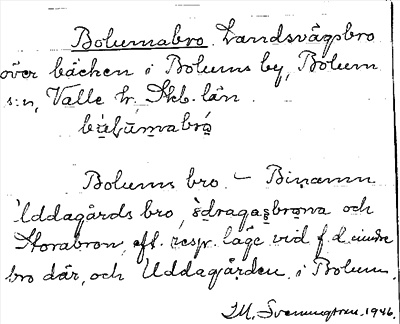 Bolumabro. Landsvägsbro
över bäcken i Bolums by, Bolum
s:n, Valle hr, Skb. län.
Bolums bro. – Binamn
Uddagårds bro, och
Storabron, eft. resp. läge vid f.d. mindre
bro där, och Uddagården i Bolum.
M. Svenungsson. 1946.